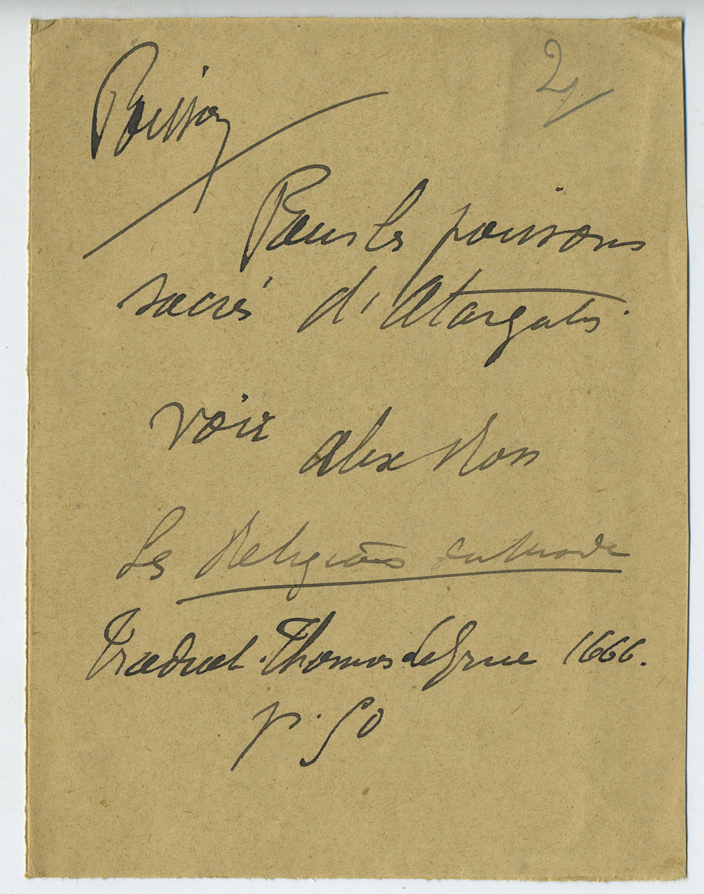 Poisson
2
Pour les poissons
sacrés d'Atargatis.
voir Alex Ross
Les Religions du Monde
Traduct. Thomas la Grue 1666.
p. 50